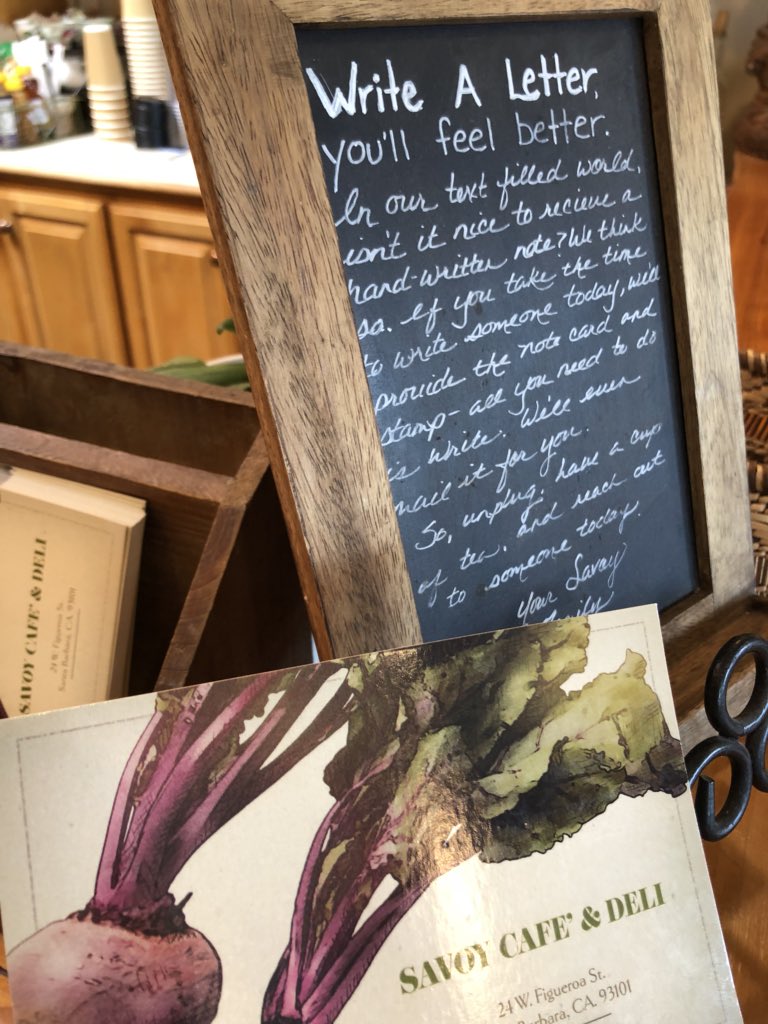 Write A Letter,
you'll feel better.
In our text filled world,
isn't it nice to recieve a
hand-written note? We think
so. If you take the time
to write someone today, we'll
provide the note card and
stamp - all you need to do
is write. We'll even
mail it for you.
So, unplug, have a cup
of tea, and reach out
to someone today.
Your Savoy
Family
SAVOY CAFE' & DELI
24 W. Figueroa St.
Santa Barbara, CA. 93101
SAVOY CAFE' & DELI
24 W. Figueroa St.
Barbara, CA. 93101